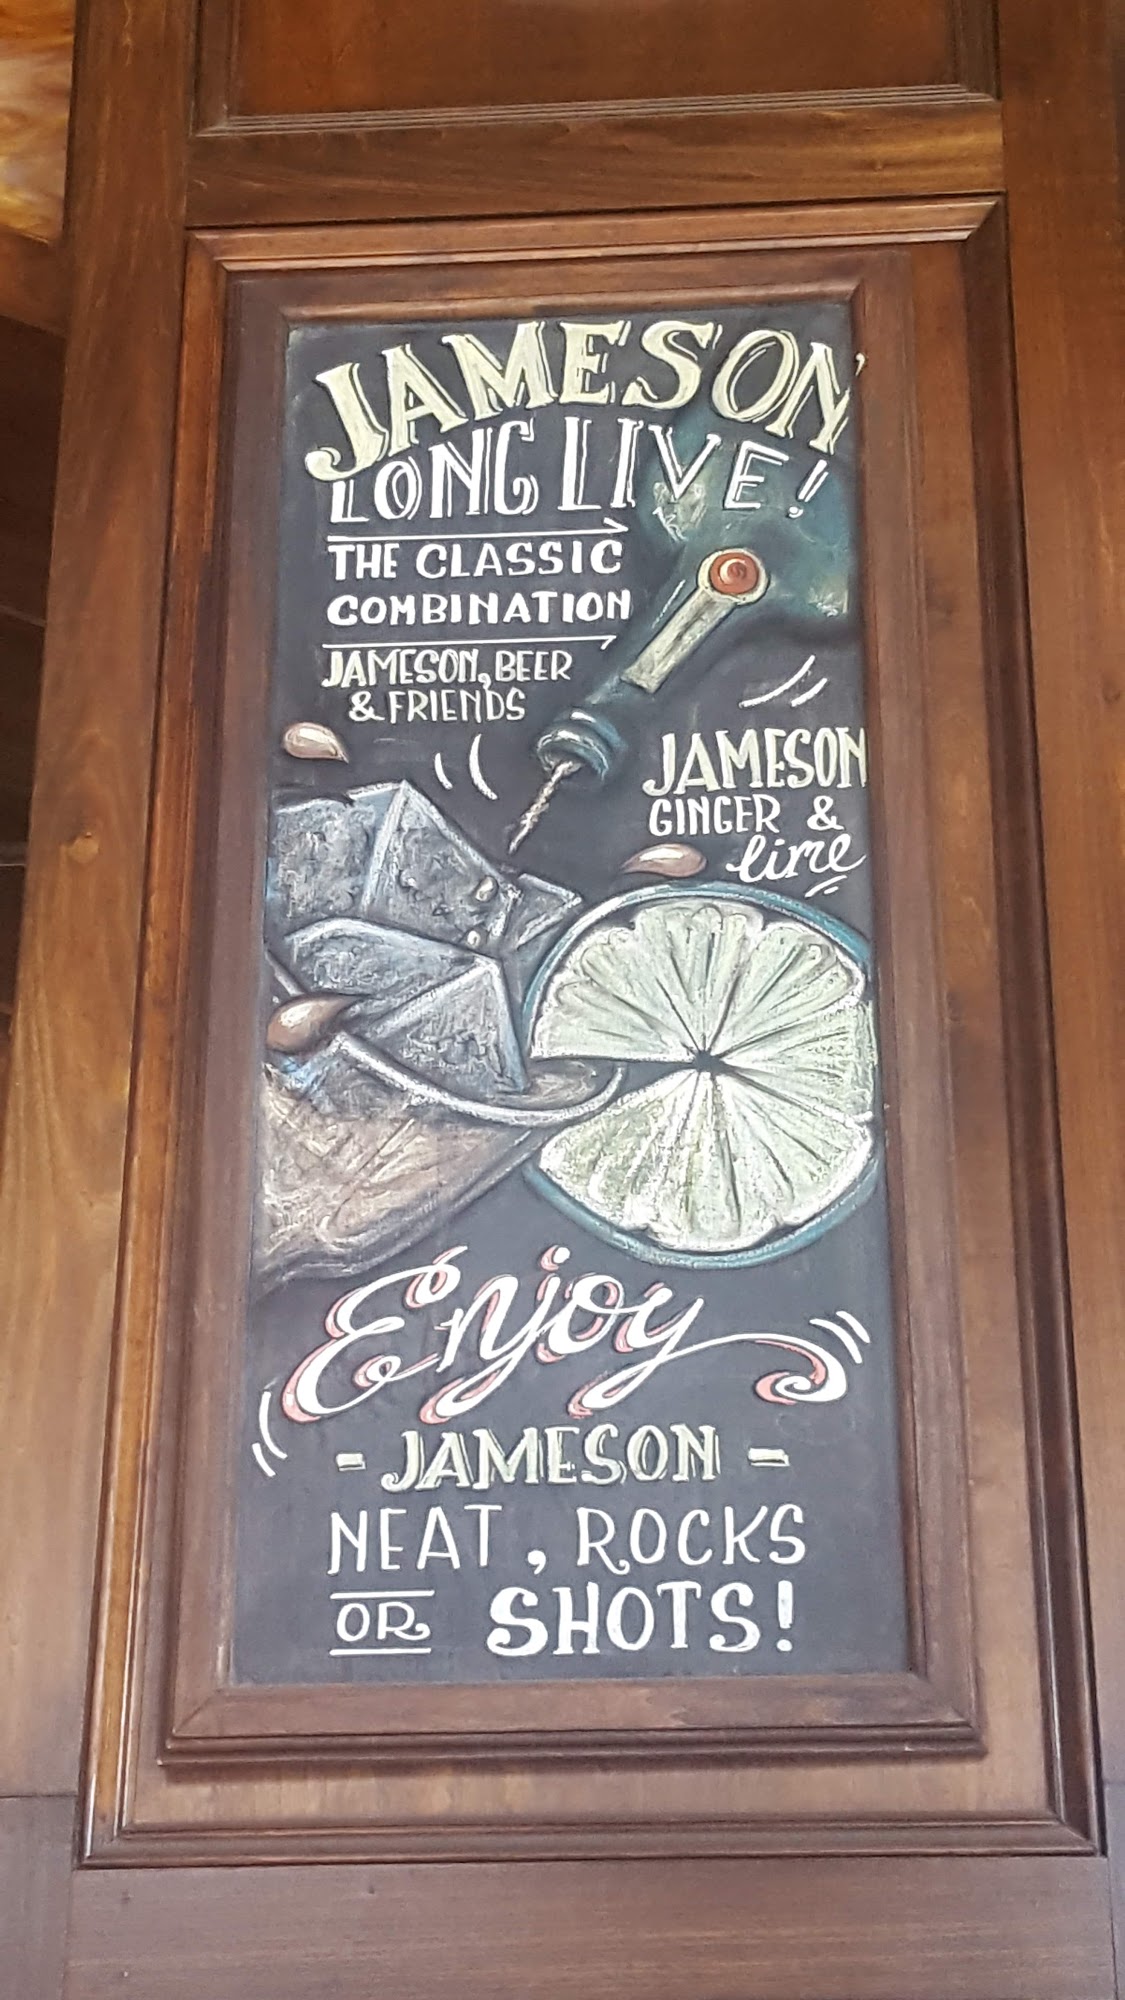 JAMESON
LONG LIVE!
THE CLASSIC
COMBINATION
JAMESON, BEER
& FRIENDS
JAMESON
GINGER &
lime
Enjoy
- JAMESON -
NEAT, ROCKS
OR SHOTS!